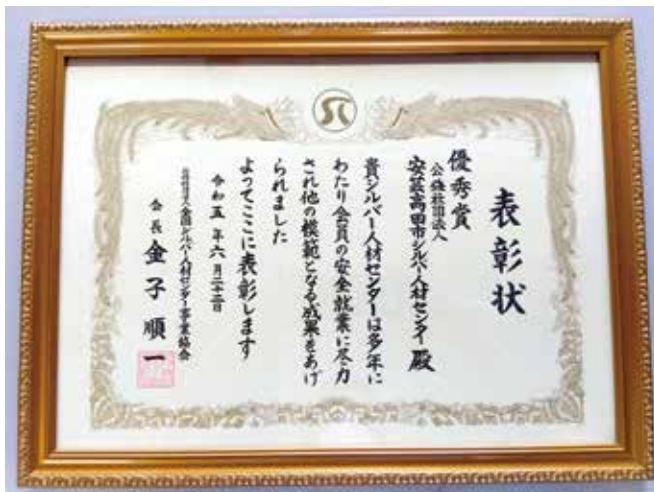 表彰状
優秀賞
公益社団法人
安芸高田市シルバー人材センター殿
貴シルバー人材センターは多年に
わたり会員の安全就業に尽力
され他の模範となる成果をあげ
られました
よってここに表彰します
令和五年六月二十二日
公益社団法人全国シルバー人材センター事業協会
会長 金子順一